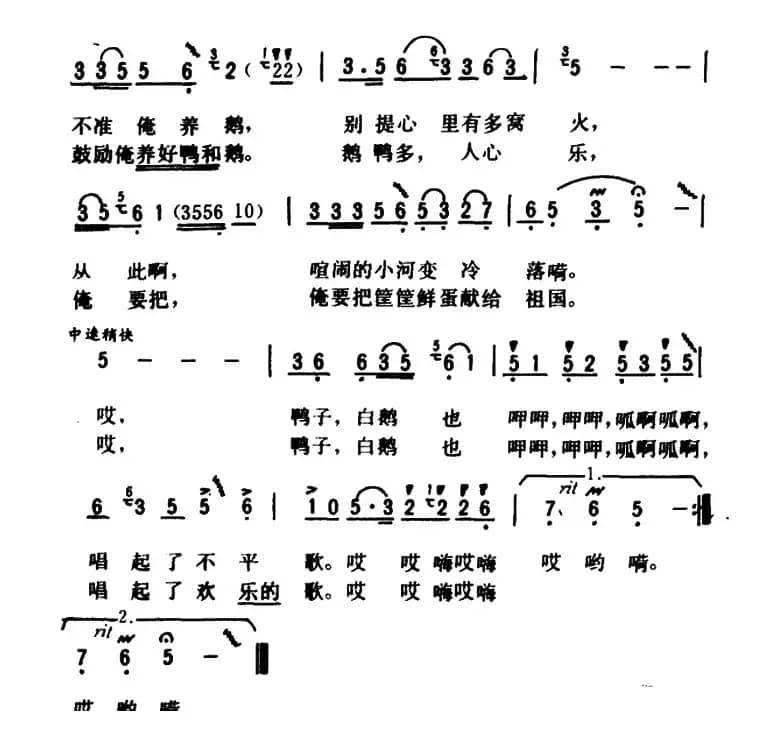 3 3 5 5 6 3 2 ( 1 2 2 ) | 3 . 5 6 6 3 3 6 3 | 3 5 - - - |
不准俺养鹅， 别提心里有多窝火，
鼓励俺养好鸭和鹅。 鹅鸭多， 人心乐，
3 5 5 6 1 ( 3 5 5 6 1 0 ) | 3 3 3 5 6 5 3 2 7 | 6 5 3 5 - |
从此啊， 喧闹的小河变冷落嗬。
俺要把， 俺要把筐筐鲜蛋献给祖国。
中速稍快
5 - - - | 3 6 6 3 5 5 6 1 | 5 1 5 2 5 3 5 5 |
哎， 鸭子，白鹅也呷呷，呷呷，呱啊呱啊，
哎， 鸭子，白鹅也呷呷，呷呷，呱啊呱啊，
1. rit
6 6 3 5 5 6 | 1 0 5 · 3 2 1 2 2 6 | 7、 6 5 - :|
唱起了不平歌。哎哎嗨哎嗨哎哟嗬。
唱起了欢乐的歌。哎哎嗨哎嗨
2. rit
7 6 5 - ‖
哎哟嗬